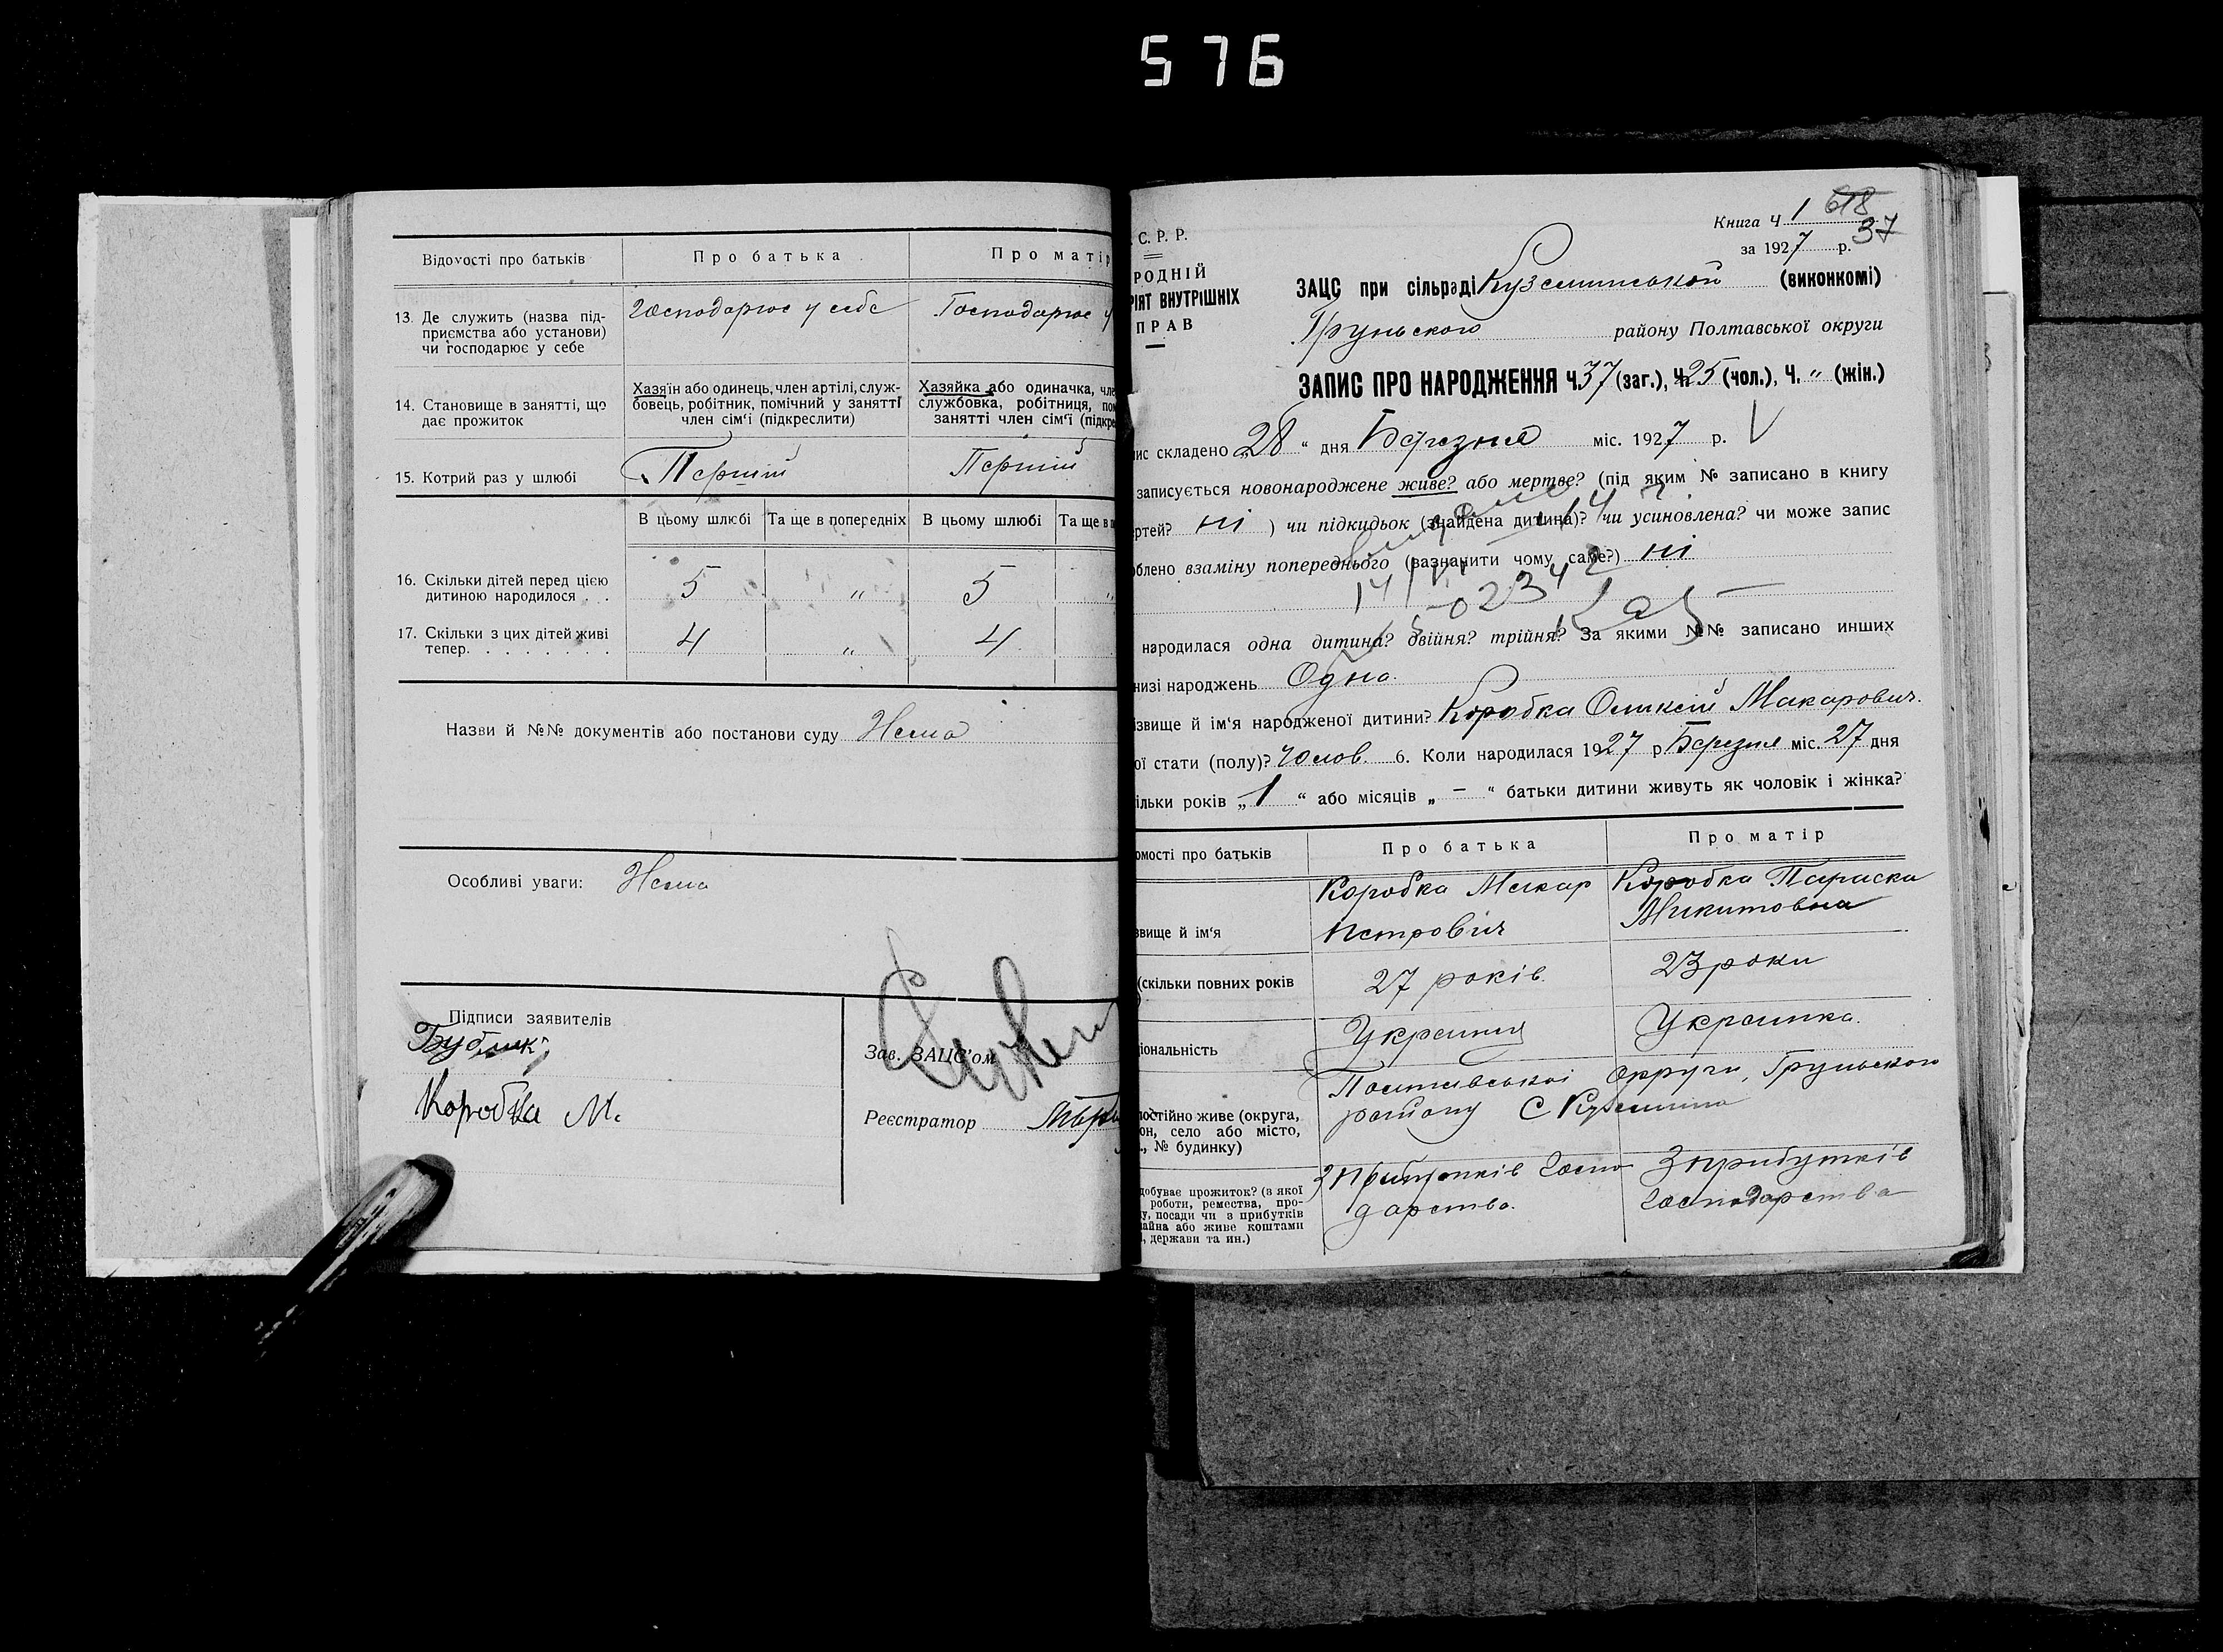 576
Відомості про батьків
Про батька
Про матір
13. Де служить (назва під-
приємства або установи)
чи господарює у себе
Господарює у себе
Господарює у
14. Становище в занятті, що
дає прожиток
Хазяїн або одинець, член артілі, служ-
бовець, робітник, помічний у занятті
член сім‘ї (підкреслити)
Хазяйка або одиначка, чле
службовка, робітниця, пом
занятті член сім‘ї (підкре
15. Котрий раз у шлюбі
Перший
Перший
В цьому шлюбі
Та ще в попередніх
В цьому шлюбі
Та ще в п
16. Скільки дітей перед цією
дитиною народилося . .
5 „ 5 „
17. Скільки з цих дітей живі
тепер. . . . . . . .
4 „ 4
Назви й №№ документів або постанови суду Нема
Особливі уваги: Нема
Підписи заявителів
Бублик
Коробка М.
Зав. ЗАЦС’ом
Реєстратор
Книга ч 1 618
за 1927 р. 37
. С. Р. Р.
РОДНІЙ
РІЯТ ВНУТРІШНІХ
ПРАВ
ЗАЦС при сільраді Куземинській (виконкомі)
Груньского району Полтавської округи
ЗАПИС ПРО НАРОДЖЕННЯ Ч. 37 (заг.), Ч. 25 (чол.), Ч. „ (жін.)
ис складено „28“ дня Березня міс. 1927 р. V
записується новонароджене живе? або мертве? (під яким № записано в книгу
ртей? ні ) чи підкидьок (знайдена дитина)? чи усиновлена? чи може запис
облено взаміну попереднього (зазначити чому саме?) ні
народилася одна дитина? двійня? трійня? За якими №№ записано инших
низі народжень Одна
ізвище й ім‘я народженої дитини? Коробка Оликсій Макарович.
ої стати (полу)? Чолов. 6. Коли народилася 1927 р Березня міс. 27 дня
ільки років „1“ або місяців „-“ батьки дитини живуть як чоловік і жінка?
омості про батьків
Про батька
Про матір
звище й ім‘я
Коробка Макар
Петрович
Коробка Параска
Микитовна
(скільки повних років
27 років.
23 роки
іональність
Украинець
Украинка.
постійно живе (округа,
он, село або місто,
., № будинку)
Полтавської округи, Груньского
району С Куземина
добуває прожиток? (з якої
роботи, ремества, про-
у, посади чи з прибутків
майна або живе коштами
, держави та ин.)
З прибутків госпо
дарства.
З прибутків
господарства